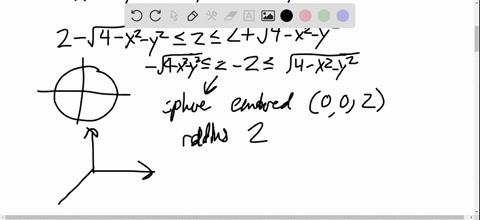 2 - √4 - x² - y² ≤ z ≤ 2 + √4 - x² - y²
-√4 - x² - y² ≤ z - 2 ≤ √4 - x² - y²
sphere centered (0, 0, 2)
radius 2